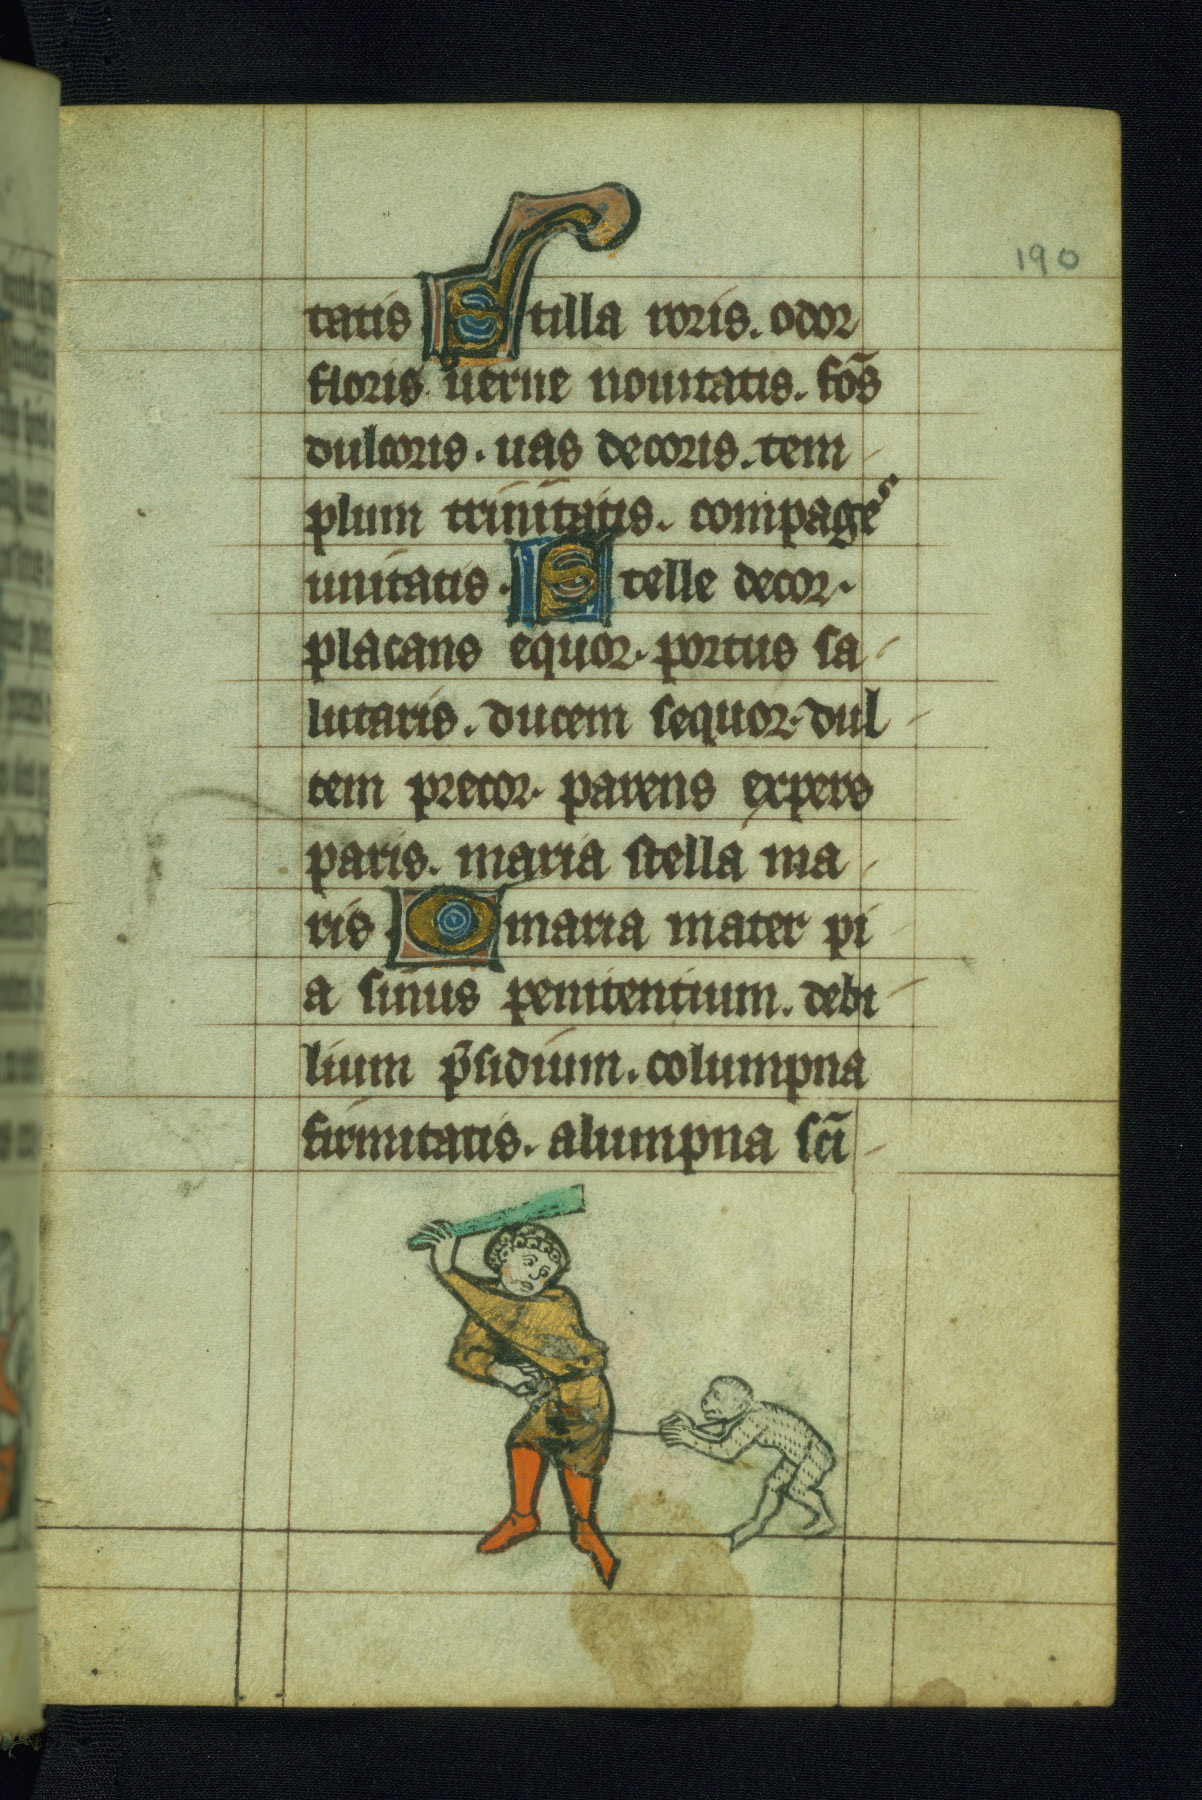 190
tatis Stilla roris. odor
floris uerne nouitatis. fōs
dulcoris. uas decoris. tem
plum trinitatis. compages
unitatis. Stelle decor.
placans equor. portus sa
lutaris. ducem sequor. dul
cem precor. parens expers
paris. maria stella ma
ris. O maria mater pi
a sinus penitentium. debi
lium p̄sidium. columpna
firmitatis. alumpna sc̄i